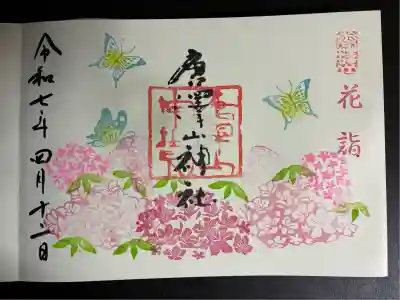 花詣
唐澤山神社
令和七年四月十二日